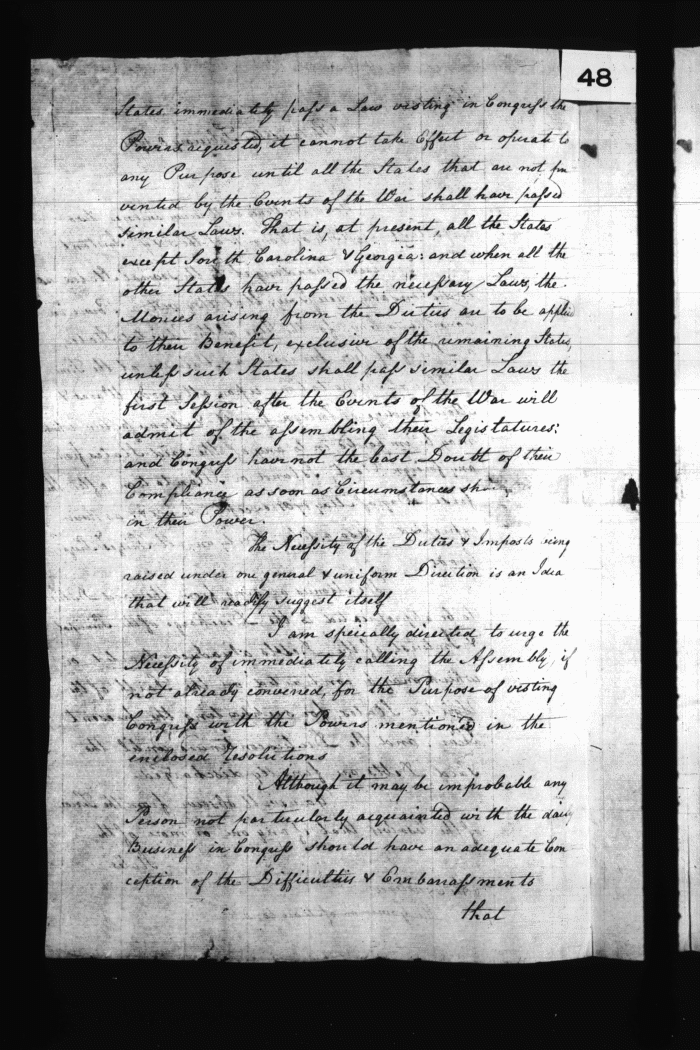 48
States immediately pass a Law vesting in Congress the
Powers requested, it cannot take Effect or operate to
any Purpose until all the States that are not pre
vented by the Events of the War shall have passed
similar Laws. That is, at present, all the States
except South Carolina & Georgia: and when all the
other States have passed the necessary Laws, the
Monies arising from the Duties are to be applied
to their Benefit, exclusive of the remaining States,
unless such States shall pass similar Laws the
first Session after the Events of the War will
admit of the assembling their Legislatures:
and Congress have not the least Doubt of their
Compliance as soon as Circumstances
in their Power.
The Necessity of the Duties & Imposts being
raised under one general & uniform Direction is an Idea
that will readily suggest itself
I am specially directed to urge the
Necessity of immediately calling the Assembly, if
not already convened, for the Purpose of vesting
Congress with the Powers mentioned in the
enclosed Resolutions
Although it may be improbable any
Person not particularly acquainted with the daily
Business in Congress should have an adequate Con
ception of the Difficulties & Embarrassments
that